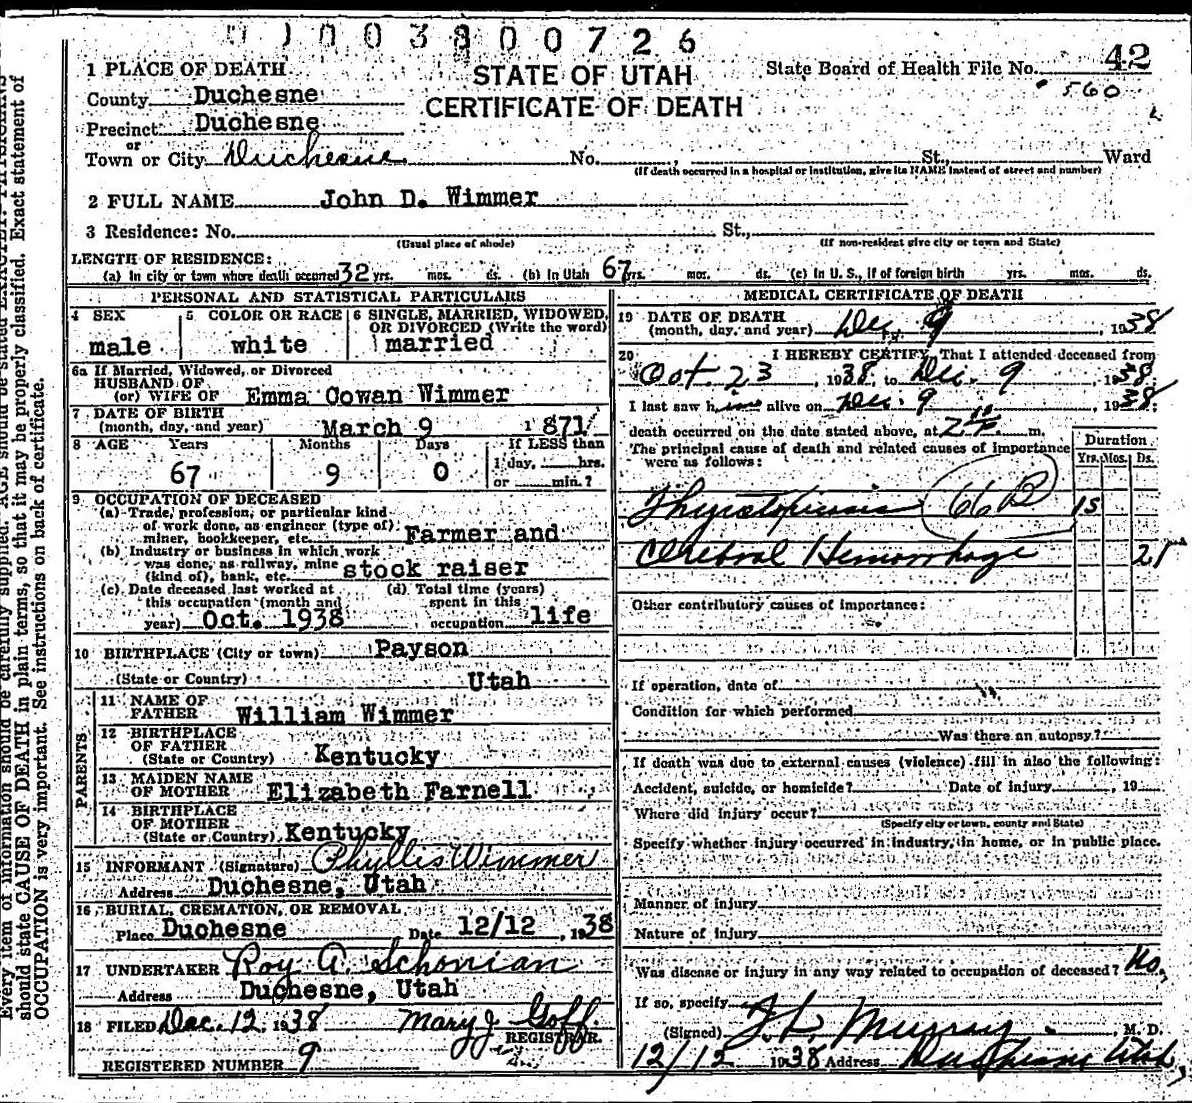 003800726
42
1 PLACE OF DEATH
STATE OF UTAH
State Board of Health File No.
560
County Duchesne
CERTIFICATE OF DEATH
Precinct Duchesne
or
Town or City Duchesne No. , St., Ward
(If death occurred in a hospital or institution, give its NAME instead of street and number)
2 FULL NAME John D. Wimmer
3 Residence: No. St.,
(Usual place of abode) (If non-resident give city or town and State)
LENGTH OF RESIDENCE:
(a) In city or town where death occurred 32 yrs. mos. ds. (b) In Utah 67 yrs. mos. ds. (c) In U. S., if of foreign birth yrs. mos. ds.
PERSONAL AND STATISTICAL PARTICULARS
4 SEX 5 COLOR OR RACE 6 SINGLE, MARRIED, WIDOWED,
OR DIVORCED (Write the word)
male white married
6a If Married, Widowed, or Divorced
HUSBAND OF
(or) WIFE OF Emma Cowan Wimmer
7 DATE OF BIRTH
(month, day, and year) March 9 1871
8 AGE Years Months Days If LESS than
67 9 0 1 day, hrs.
or min.?
9 OCCUPATION OF DECEASED
(a) Trade, profession, or particular kind
of work done, as engineer (type of)
miner, bookkeeper, etc. Farmer and
(b) Industry or business in which work
was done, as railway, mine
(kind of), bank, etc. stock raiser
(c) Date deceased last worked at (d) Total time (years)
this occupation (month and spent in this
year) Oct. 1938 occupation life
10 BIRTHPLACE (City or town) Payson
(State or Country) Utah
PARENTS
11 NAME OF
FATHER William Wimmer
12 BIRTHPLACE
OF FATHER
(State or Country) Kentucky
13 MAIDEN NAME
OF MOTHER Elizabeth Farnell
14 BIRTHPLACE
OF MOTHER
(State or Country) Kentucky
15 INFORMANT (Signature) Phyllis Wimmer
Address Duchesne, Utah
16 BURIAL, CREMATION, OR REMOVAL
Place Duchesne Date 12/12, 1938
17 UNDERTAKER Roy A. Schonian
Address Duchesne, Utah
18 FILED Dec. 12, 1938 Mary J. Goff
REGISTRAR.
REGISTERED NUMBER 9
MEDICAL CERTIFICATE OF DEATH
19 DATE OF DEATH
(month, day, and year) Dec 9, 1938
20 I HEREBY CERTIFY, That I attended deceased from
Oct. 23, 1938, to Dec. 9, 1938
I last saw him alive on Dec. 9, 1938;
death occurred on the date stated above, at m.
The principal cause of death and related causes of importance
were as follows:
Duration
Yrs. Mos. Ds.
66 B 15
Cerebral Hemorrhage
Other contributory causes of importance:
If operation, date of
Condition for which performed
Was there an autopsy?
If death was due to external causes (violence) fill in also the following:
Accident, suicide, or homicide? Date of injury , 19
Where did injury occur?
(Specify city or town, county and State)
Specify whether injury occurred in industry, in home, or in public place.
Manner of injury
Nature of injury
Was disease or injury in any way related to occupation of deceased? No.
If so, specify
(Signed) Murray M. D.
12/12 1938 Address Duchesne Utah
should state CAUSE OF DEATH in plain terms, so that it may be properly classified. Exact statement of
OCCUPATION is very important. See instructions on back of certificate.